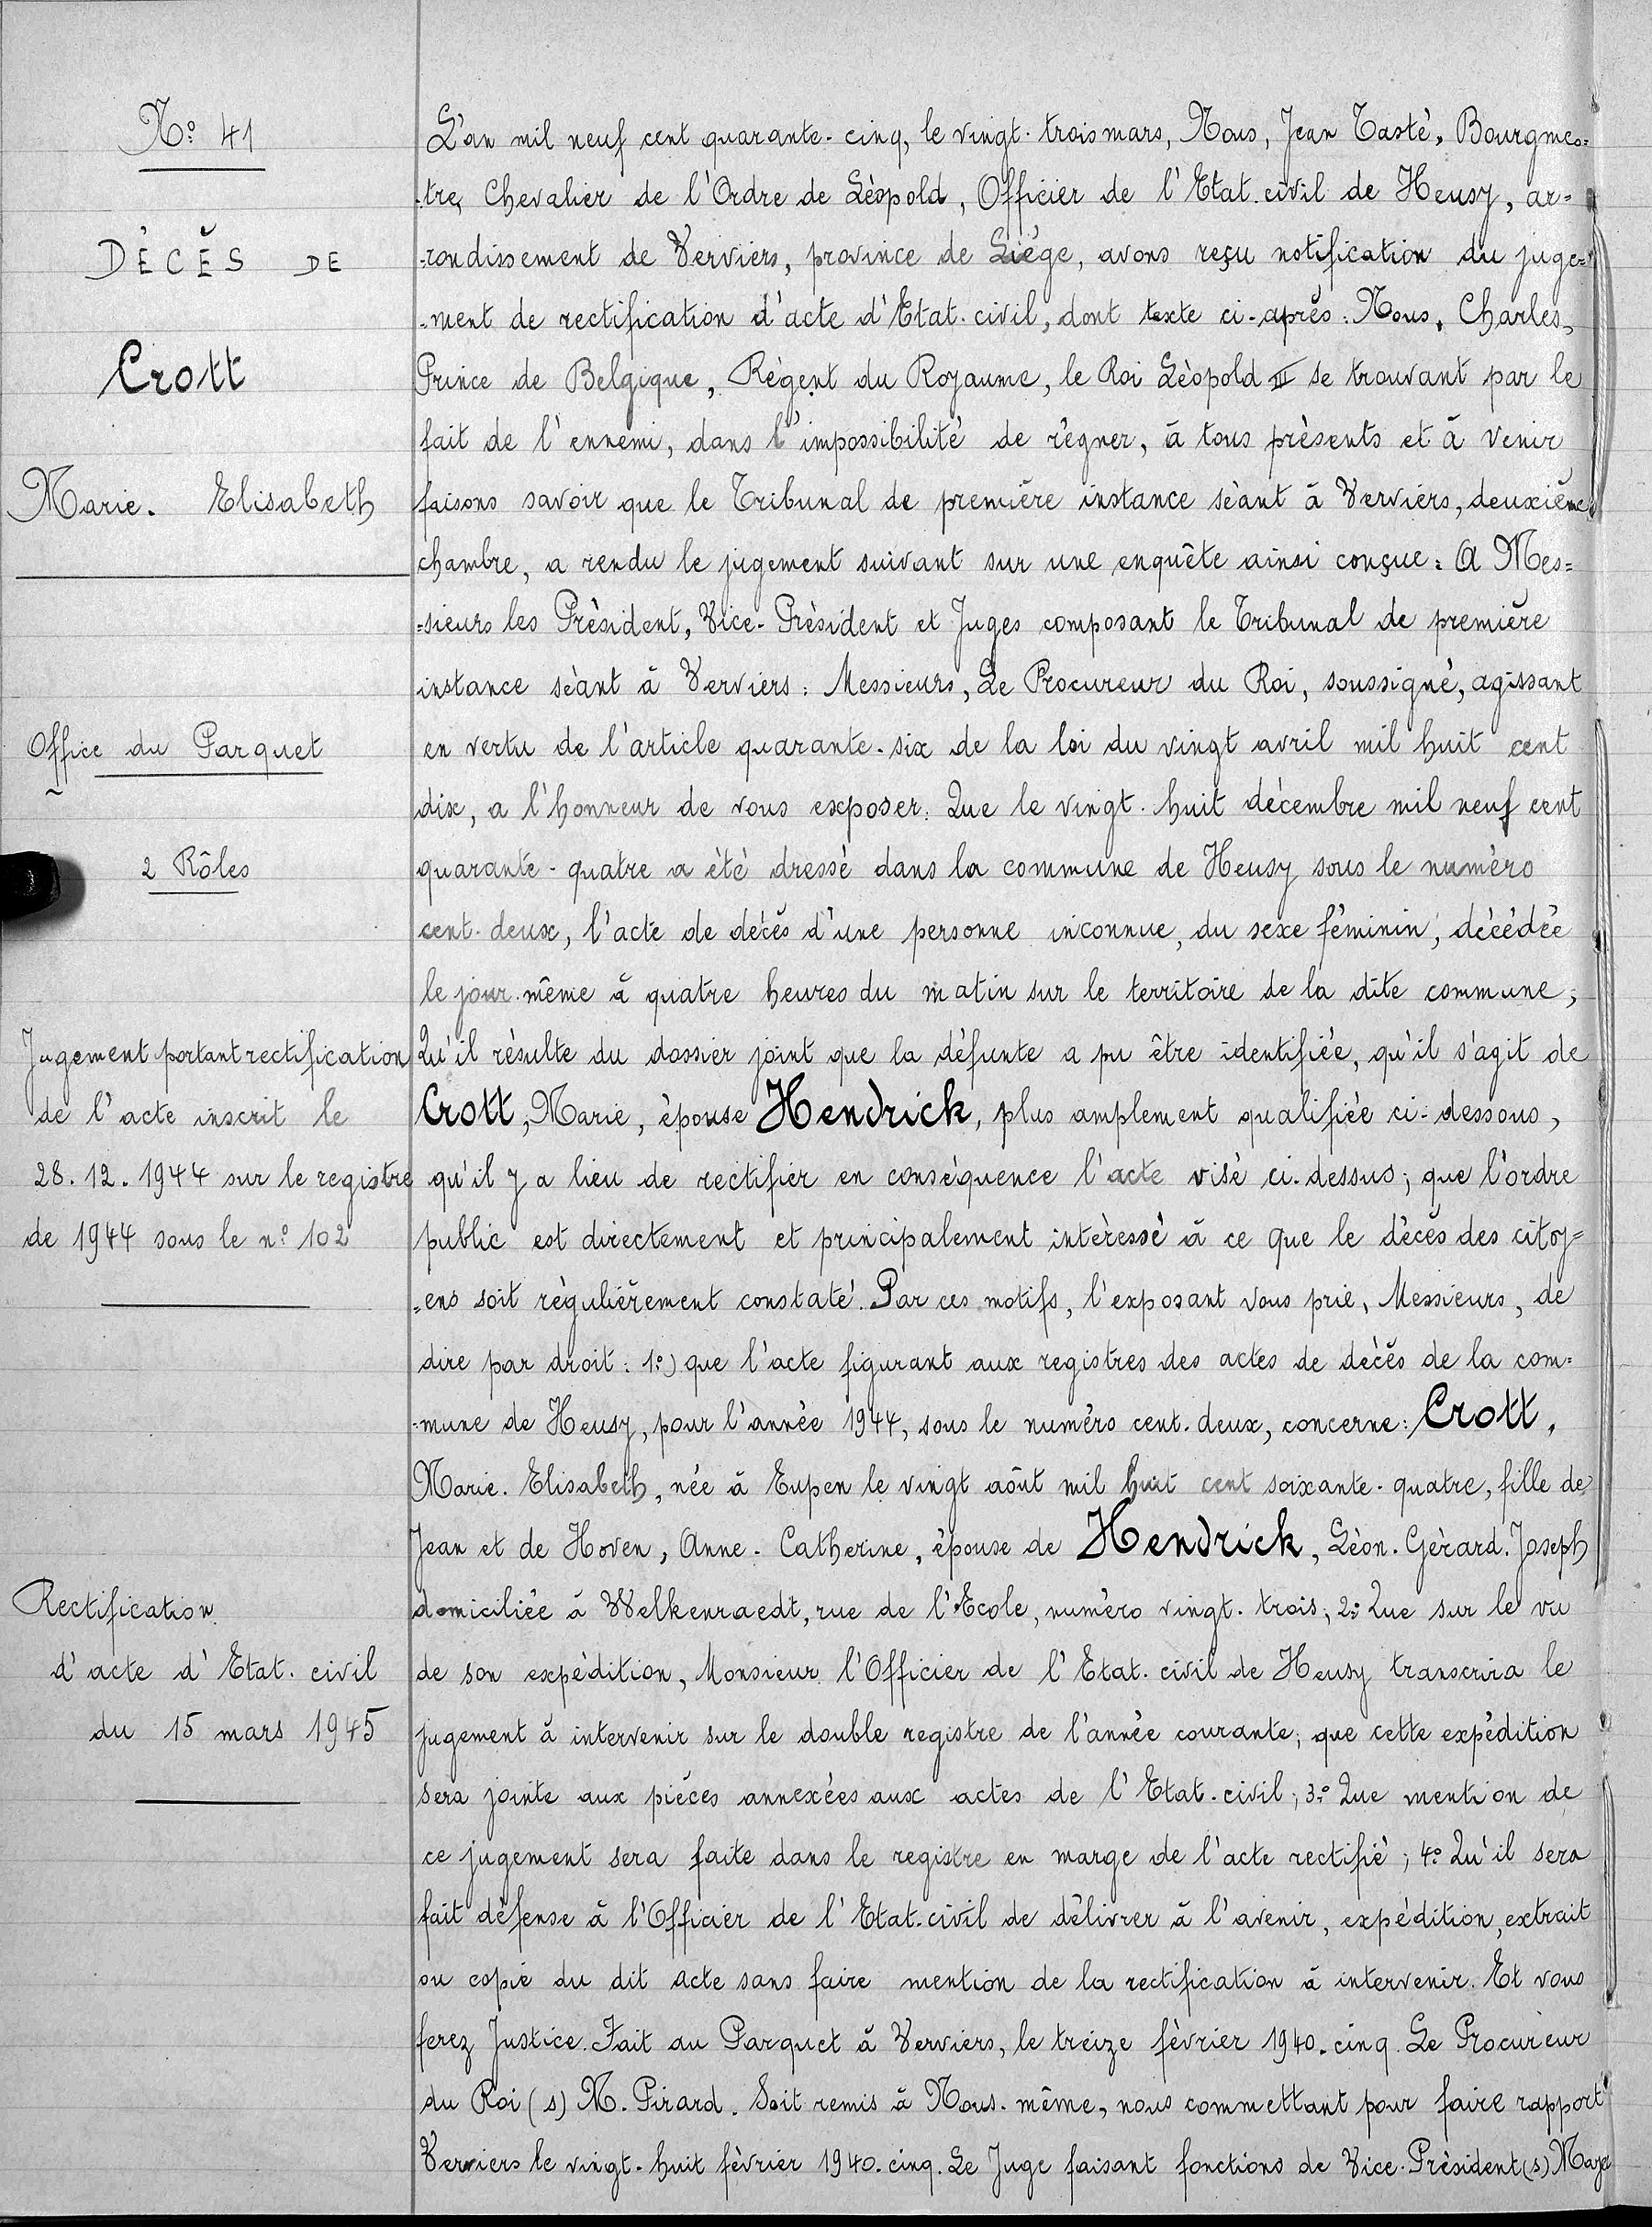 Nº 41
DÉCÈS DE
Crott
Marie. Elisabeth
Office du Parquet
2 Rôles
Jugement portant rectification
de l'acte inscrit le
28. 12. 1944 sur le registre
de 1944 sous le nº 102
Rectification
d'acte d'Etat. civil
du 15 mars 1945
L'an mil neuf cent quarante-cinq, le vingt-trois mars, Nous, Jean Tasté, Bourgmes=
-tre, Chevalier de l'Ordre de Léopold, Officier de l'Etat. civil de Heusy, ar=
-rondissement de Verviers, province de Liége, avons reçu notification du juge=
-ment de rectification d'acte d'Etat. civil, dont texte ci-après: Nous, Charles,
Prince de Belgique, Régent du Royaume, le Roi Léopold III se trouvant par le
fait de l'ennemi, dans l'impossibilité de régner, à tous présents et à venir
faisons savoir que le Tribunal de première instance séant à Verviers, deuxième
chambre, a rendu le jugement suivant sur une enquête ainsi conçue: A Mes=
=sieurs les Président, Vice-Président et Juges composant le Tribunal de première
instance séant à Verviers: Messieurs, Le Procureur du Roi, soussigné, agissant
en vertu de l'article quarante-six de la loi du vingt avril mil huit cent
dix, a l'honneur de vous exposer: Que le vingt-huit décembre mil neuf cent
quarante-quatre a été dressé dans la commune de Heusy sous le numéro
cent-deux, l'acte de décès d'une personne inconnue, du sexe féminin, décédée
le jour-même à quatre heures du matin sur le territoire de la dite commune;
Qu'il résulte du dossier joint que la défunte a pu être identifiée, qu'il s'agit de
Crott, Marie, épouse Hendrick, plus amplement qualifiée ci-dessous,
qu'il y a lieu de rectifier en conséquence l'acte visé ci-dessus; que l'ordre
public est directement et principalement intéressé à ce que le décès des citoy=
-ens soit régulièrement constaté. Par ces motifs, l'exposant vous prie, Messieurs, de
dire par droit: 1º) que l'acte figurant aux registres des actes de décès de la com=
-mune de Heusy, pour l'année 1944, sous le numéro cent-deux, concerne: Crott,
Marie. Elisabeth, née à Eupen le vingt août mil huit cent soixante-quatre, fille de
Jean et de Hoven, Anne-Catherine, épouse de Hendrick, Léon. Gérard. Joseph
domiciliée à Welkenraedt, rue de l'Ecole, numéro vingt-trois; 2º Que sur le vu
de son expédition, Monsieur l'Officier de l'Etat. civil de Heusy transcrira le
jugement à intervenir sur le double registre de l'année courante; que cette expédition
sera jointe aux pièces annexées aux actes de l'Etat. civil; 3º Que mention de
ce jugement sera faite dans le registre en marge de l'acte rectifié; 4º Qu'il sera
fait défense à l'Officier de l'Etat. civil de délivrer à l'avenir, expédition, extrait
ou copie du dit acte sans faire mention de la rectification à intervenir. Et vous
ferez Justice. Fait au Parquet à Verviers, le treize février 1940-cinq. Le Procureur
du Roi (s) N. Pirard. Soit remis à Nous-même, nous commettant pour faire rapport
Verviers le vingt-huit février 1940-cinq. Le Juge faisant fonctions de Vice-Président (s)